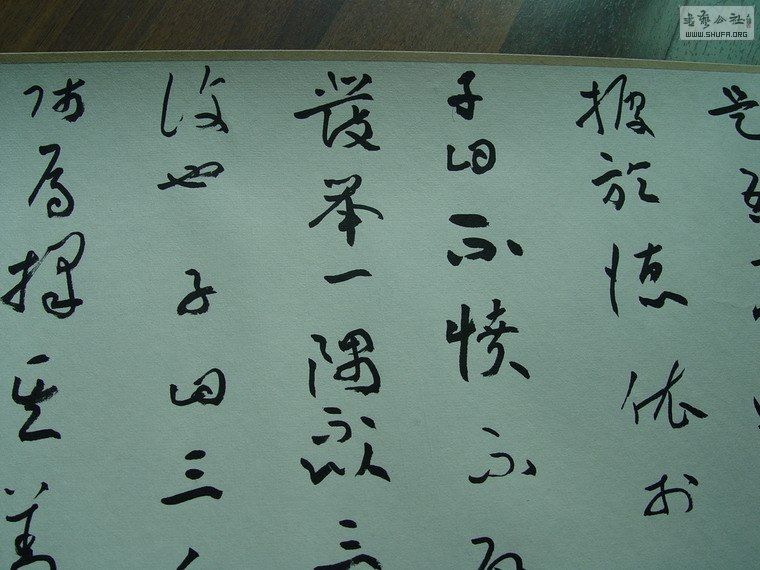 是吾
據於德依於
子曰不憤不
發舉一隅不以三
復也子曰三人
師焉擇其善
书艺公社
WWW.SHUFA.ORG